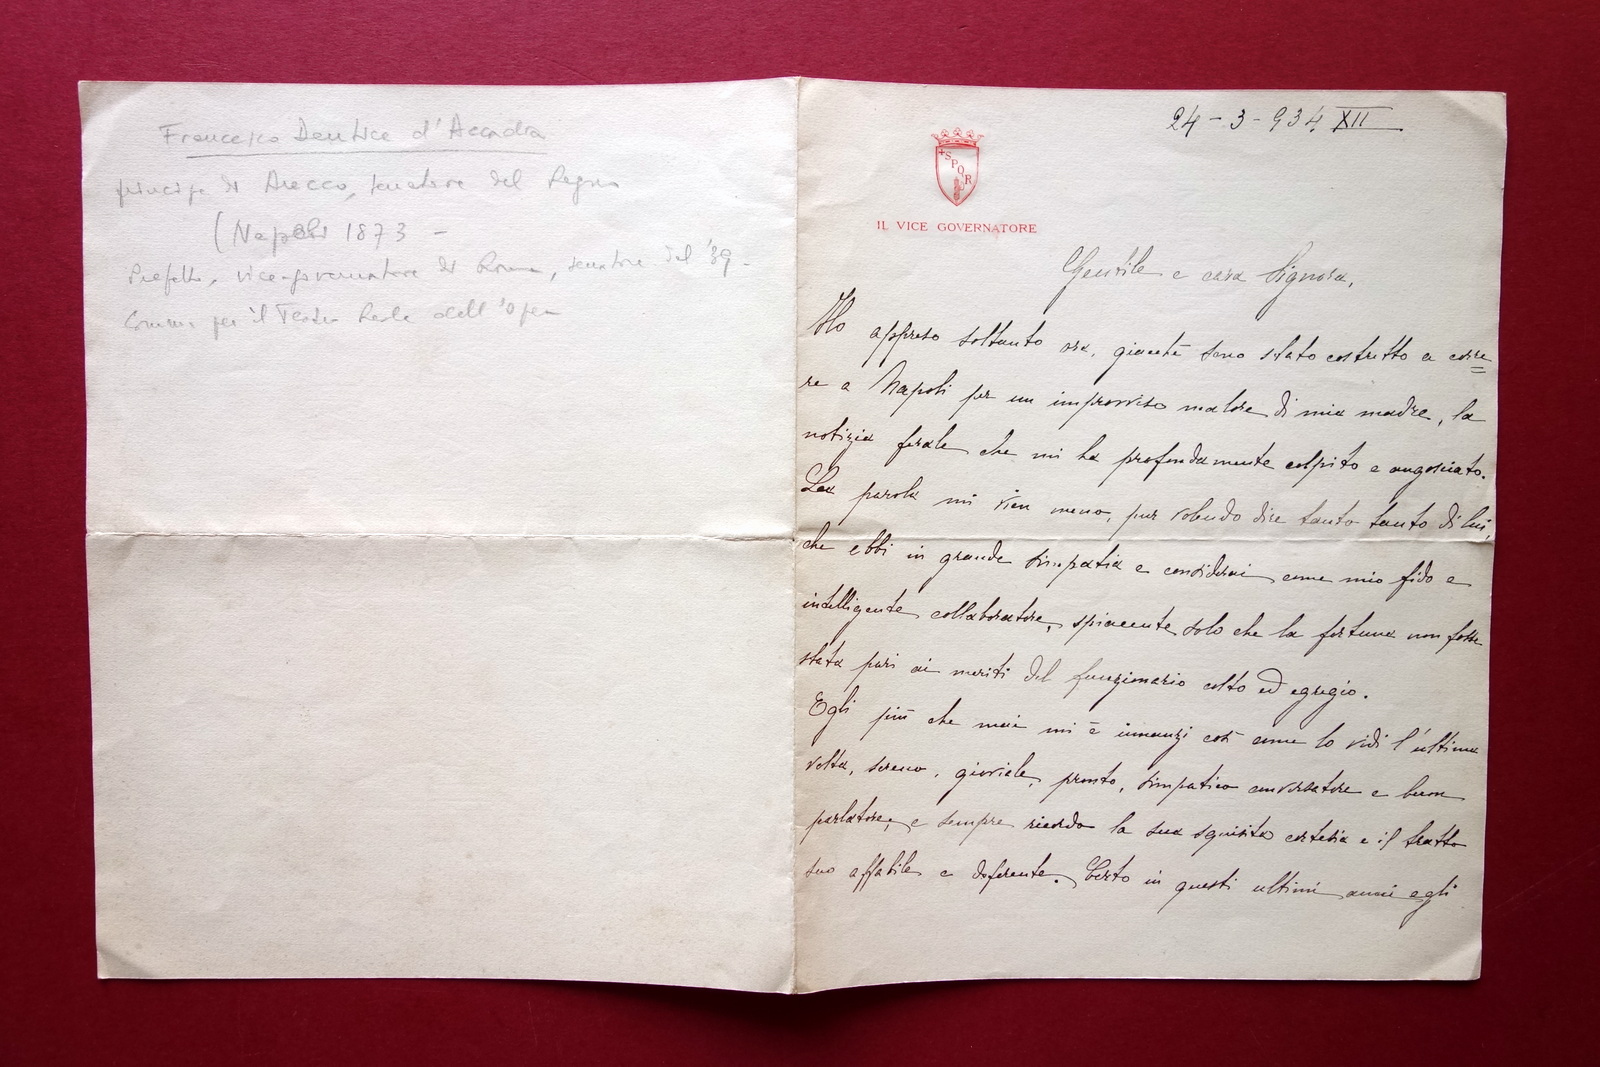 Francesco Dentice d'Accadia
principe di Arecco, senatore del Regno
(Napoli 1873 -
Prefetto, vice-governatore di Roma, senatore del '39 -
Comm. per il Teatro Reale dell'Opera
24-3-934 XII
S P Q R
IL VICE GOVERNATORE
Gentile e cara Signora,
Ho appreso soltanto ora, giacché sono stato costretto a corre=
re a Napoli per un improvviso malore di mia madre, la
notizia ferale che mi ha profondamente colpito e angosciato.
La parola mi vien meno, pur volendo dire tanto tanto di lui,
che ebbi in grande simpatia e considerai come mio fido e
intelligente collaboratore, spiacente solo che la fortuna non fosse
stata pari ai meriti del funzionario colto ed egregio.
Egli più che mai mi è innanzi così come lo vidi l'ultima
volta, sereno, gioviale, pronto, simpatico conversatore e buon
parlatore, e sempre ricordo la sua squisita cortesia e il tratto
suo affabile e deferente. Certo in questi ultimi anni egli